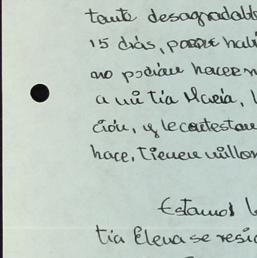 tante desagradabl
15 días, porque habí
no podían hacer n
a mi tía María, l
ción, y le contestan
hace, tienen millon
Estamos l
tía Elena se resi